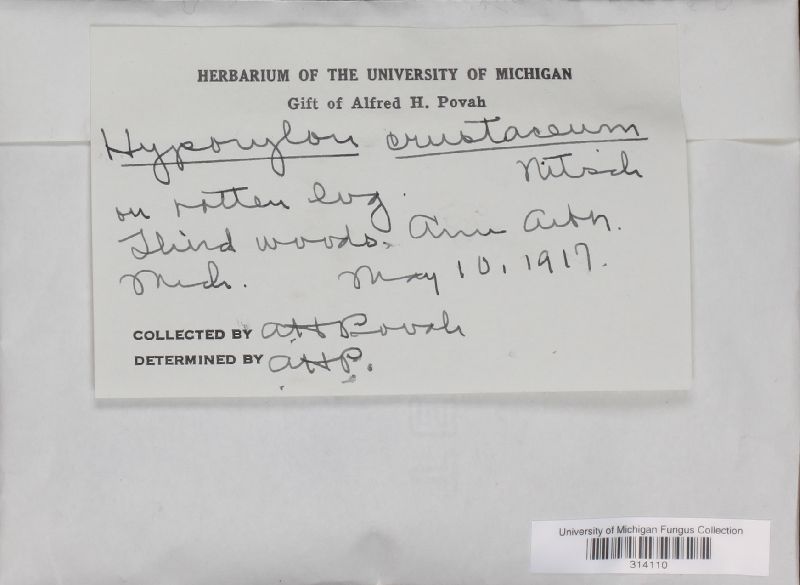 HERBARIUM OF THE UNIVERSITY OF MICHIGAN
Gift of Alfred H. Povah
Hypoxylon crustaceum
Nitsch
on rotten log.
Third woods, Ann Arbr.
Mich. May 10, 1917.
COLLECTED BY AHPovah
DETERMINED BY AHP.
University of Michigan Fungus Collection
314110